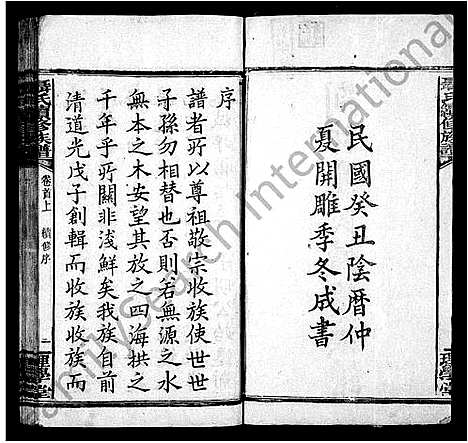 氏續修族譜
理學堂
民國癸丑陰曆仲
夏開雕季冬成書
序
譜者所以尊祖敬宗收族使世世
子孫勿相替也否則若無源之水
無本之木安望其放之四海拱之
千年乎所關非淺鮮矣我族自前
清道光戊子創輯而收族收族而
氏續修族譜 卷首上 續修序 二 理學堂
FamilySearch International